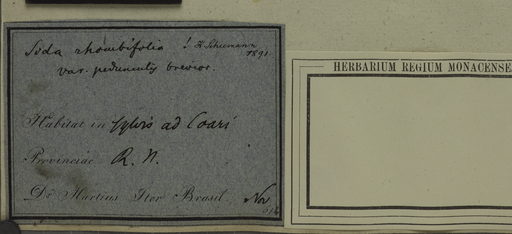 Sida rhombifolia ! K. Schumann
1891.
var. pedunculis brevior.
Habitat in sylvis ad Coari
Provinciae R. N.
Dr Martius Iter Brasil. Nov
HERBARIUM REGIUM MONACENSE